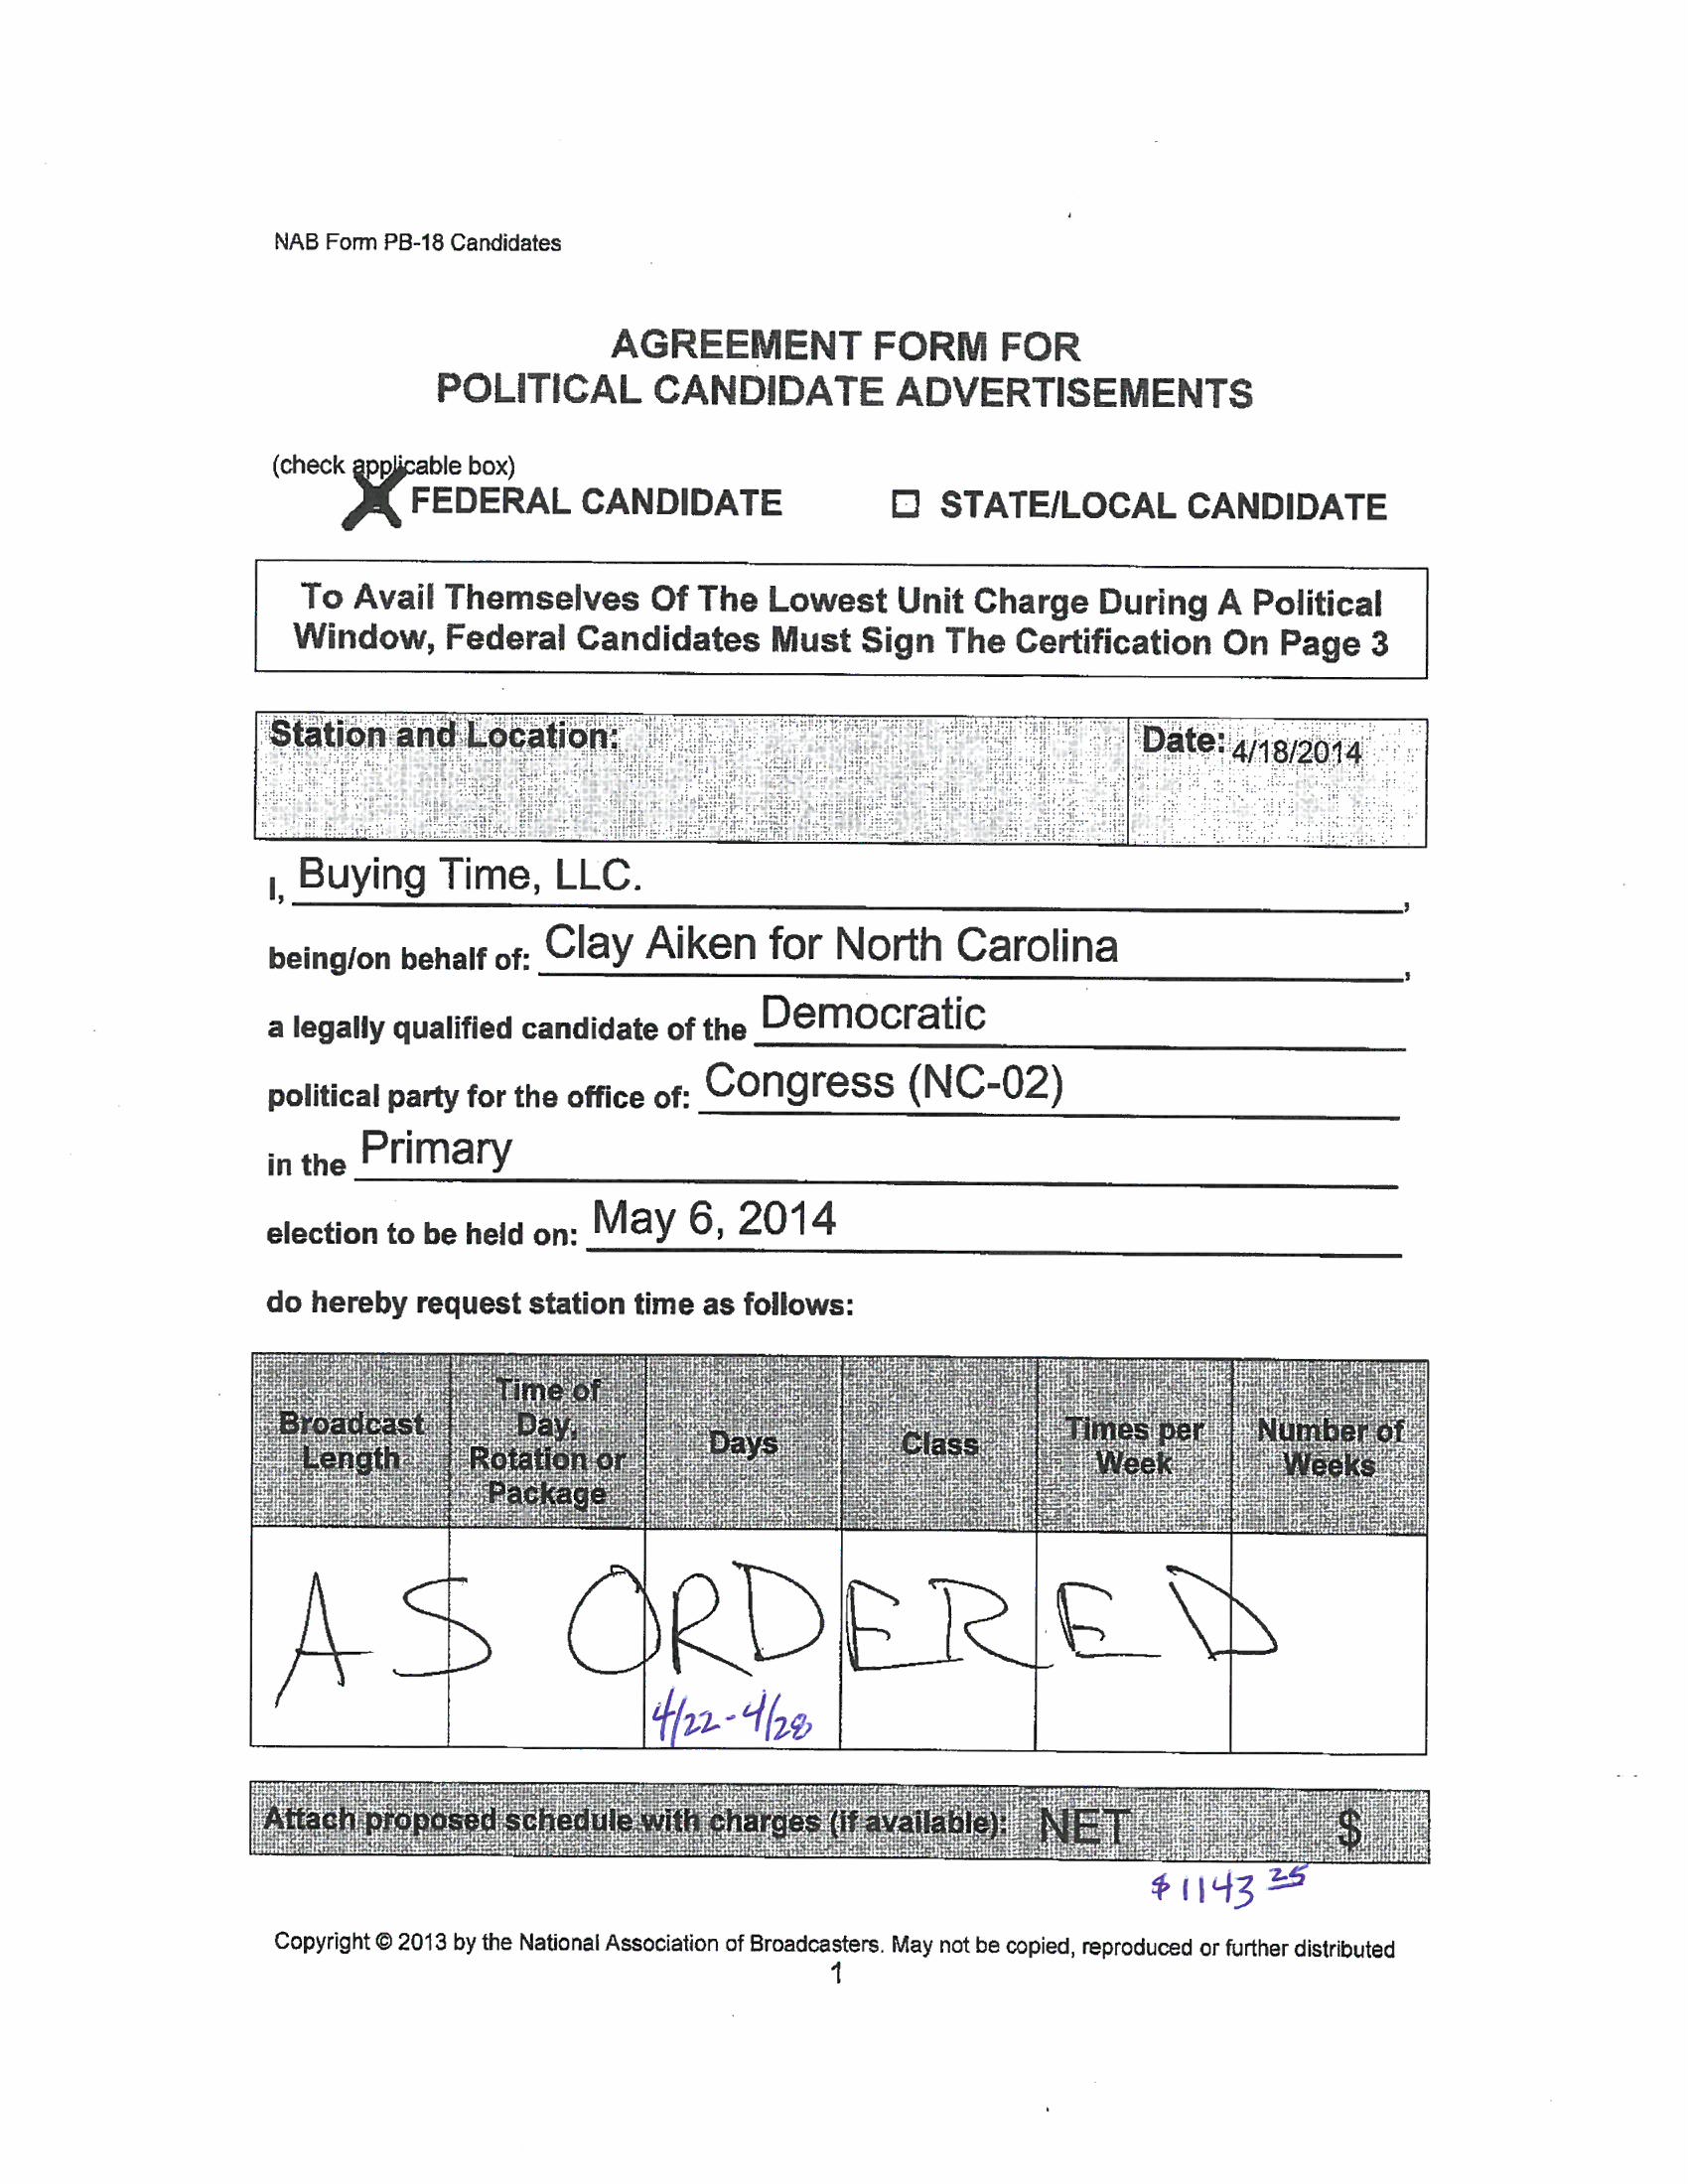 NAB Form PB-18 Candidates
AGREEMENT FORM FOR
POLITICAL CANDIDATE ADVERTISEMENTS
(check applicable box)
FEDERAL CANDIDATE STATE/LOCAL CANDIDATE
To Avail Themselves Of The Lowest Unit Charge During A Political
Window, Federal Candidates Must Sign The Certification On Page 3
Station and Location: Date: 4/18/2014
I, Buying Time, LLC. ,
being/on behalf of: Clay Aiken for North Carolina ,
a legally qualified candidate of the Democratic
political party for the office of: Congress (NC-02)
in the Primary
election to be held on: May 6, 2014
do hereby request station time as follows:
Broadcast Length
Time of Day, Rotation or Package
Days
Class
Times per Week
Number of Weeks
AS ORDERED
4/22-4/28
Attach proposed schedule with charges (if available): NET $
$1143 25
Copyright © 2013 by the National Association of Broadcasters. May not be copied, reproduced or further distributed
1